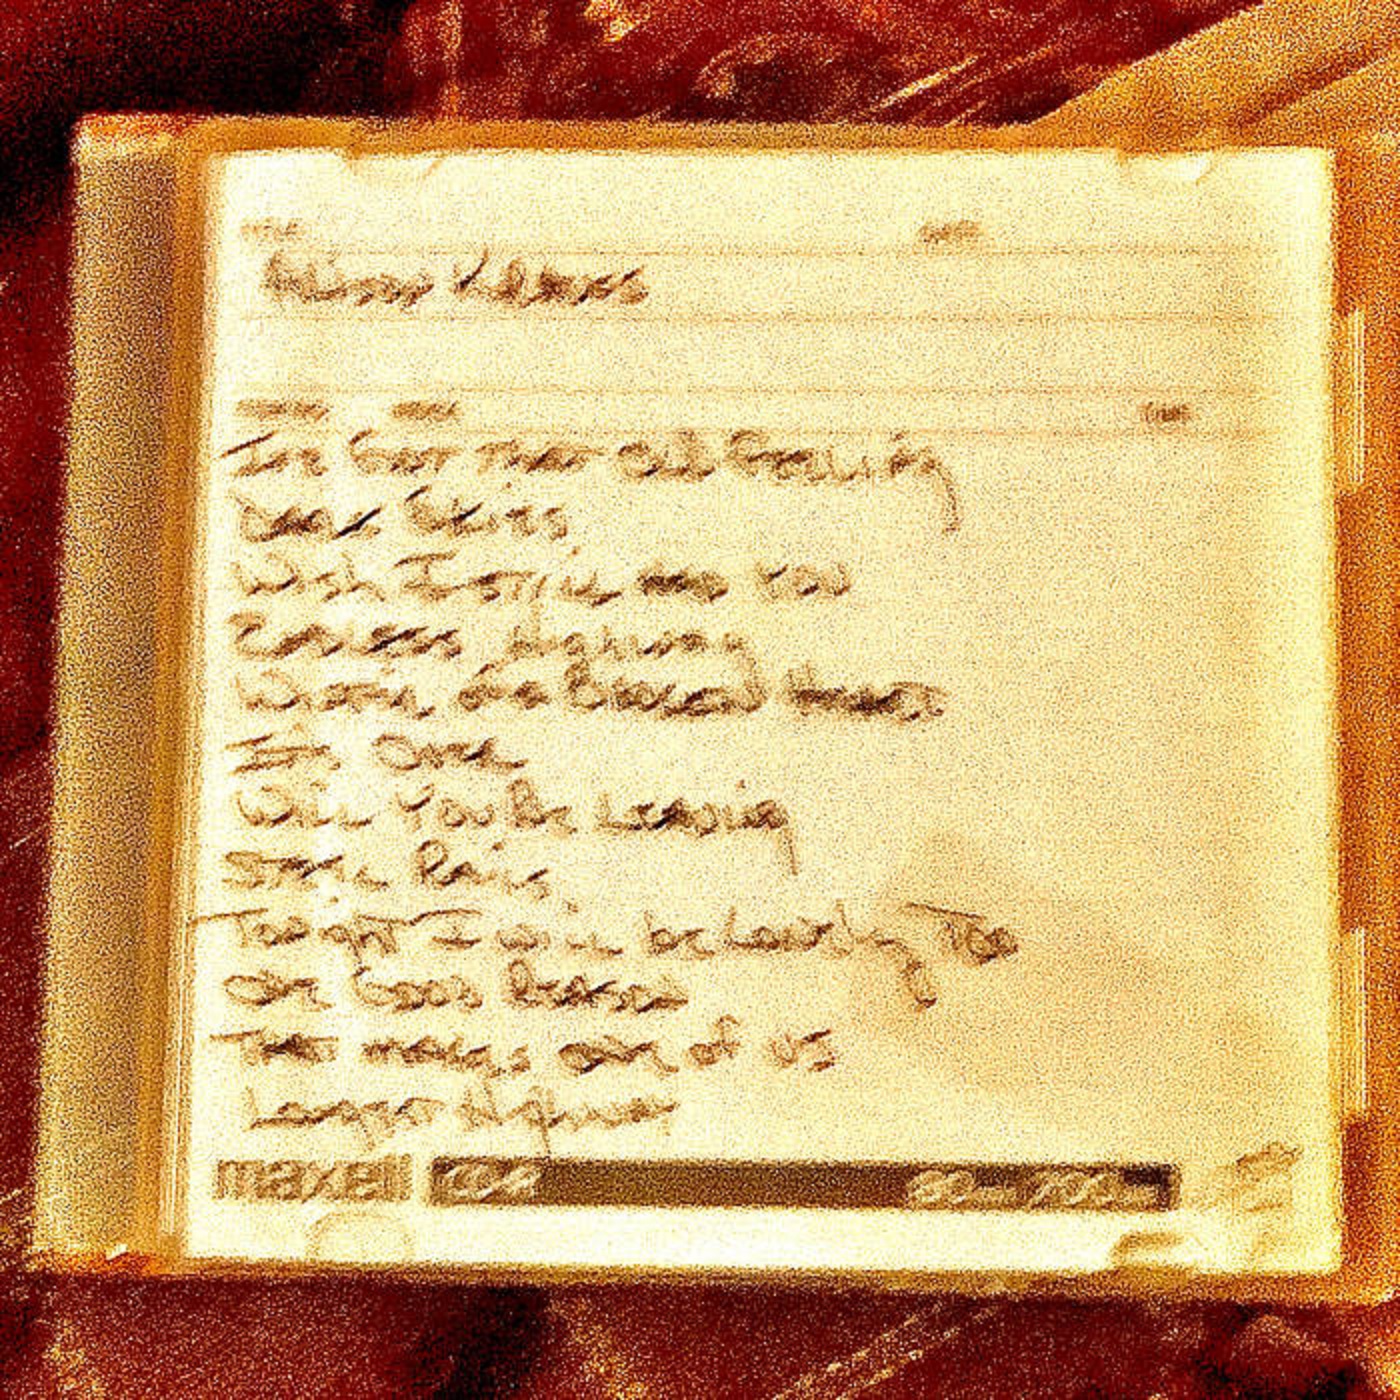 Alison Krauss
I've Got That Old Feeling
Dark Skies
Wish I Still Had You
Endless Highway
Winter of a Broken Heart
It's Over
Will You Be Leaving
Steel Rails
Tonight I will be Lonely Too
One Good Reason
That makes one of us
Longest Highway
maxell